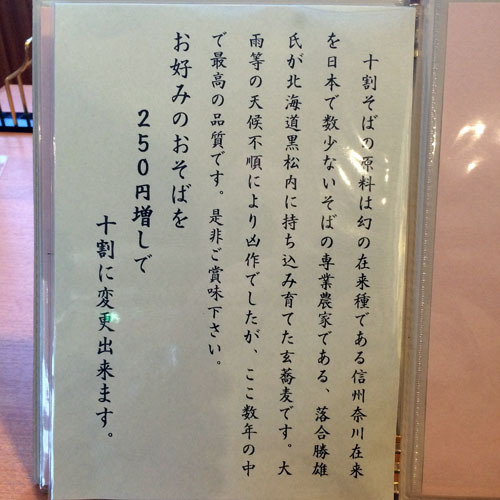 十割そばの原料は幻の在来種である信州奈川在来
を日本で数少ないそばの専業農家である、落合勝雄
氏が北海道黒松内に持ち込み育てた玄蕎麦です。大
雨等の天候不順により凶作でしたが、ここ数年の中
で最高の品質です。是非ご賞味下さい。
お好みのおそばを
250円増しで
十割に変更出来ます。